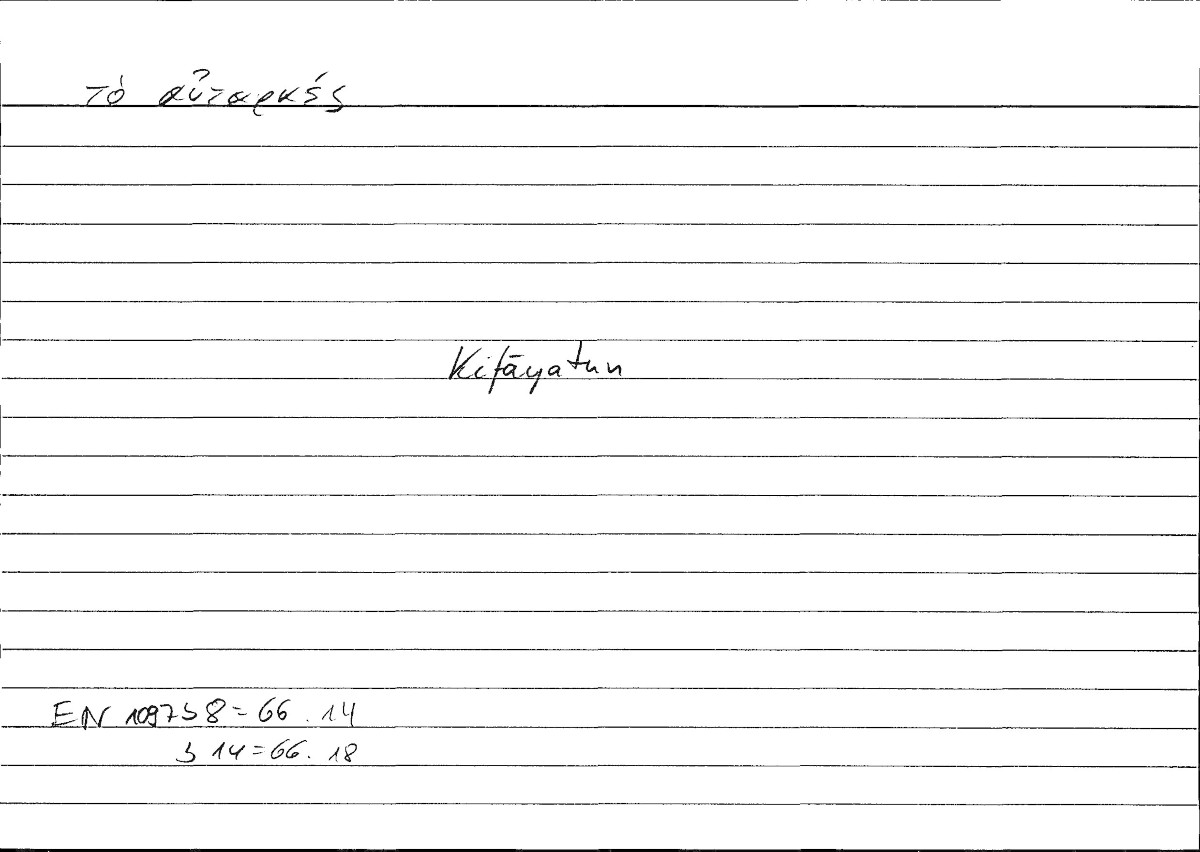 τὸ αὔταρκές
Kifāyatun
EN 1097b8 = 66.14
b 14 = 66.18